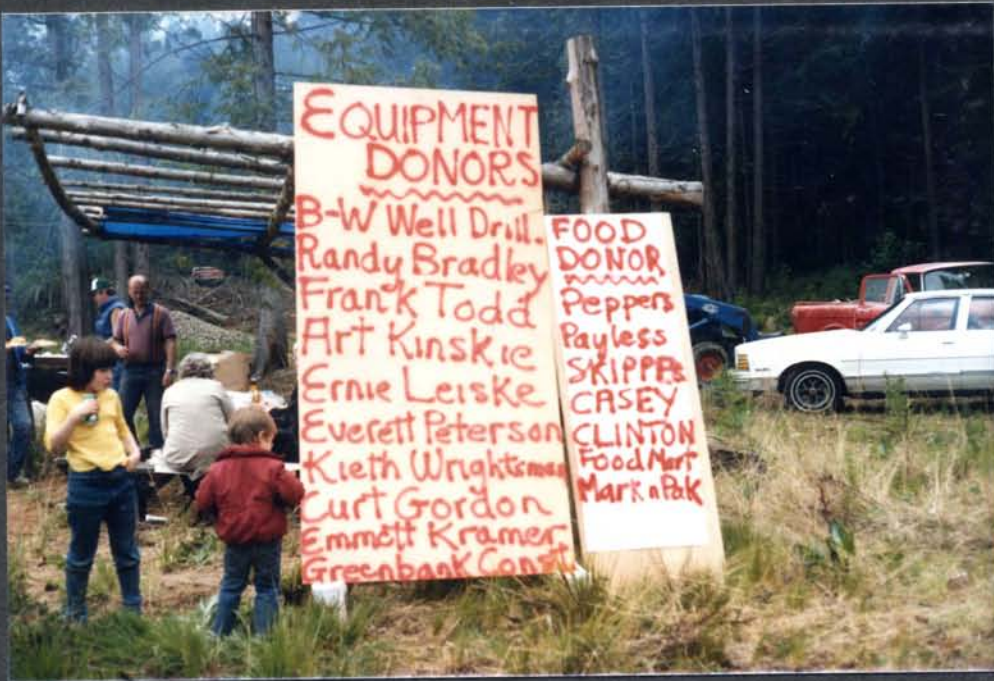 EQUIPMENT
DONORS
B-W Well Drill.
Randy Bradley
Frank Todd
Art Kinskie
Ernie Leiske
Everett Peterson
Kieth Wrightsman
Curt Gordon
Emmett Kramer
Greenbank Const
FOOD
DONOR
Peppers
Payless
SKIPPERS
CASEY
CLINTON
Food Mart
Mark n Pak